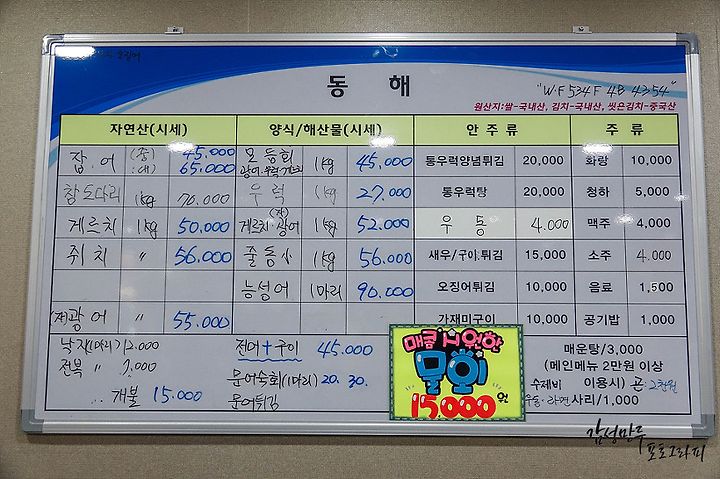 동 해
"W·F 534F 4B 4354"
원산지:쌀-국내산, 김치-국내산, 씻은김치-중국산
자연산(시세) 양식/해산물(시세) 안 주 류 주 류
잡어 (중) 45,000 모듬회 1kg 45,000 통우럭양념튀김 20,000 화랑 10,000
(대) 65,000 광어·우럭
참도다리 1kg 70,000 우럭 1kg 27,000 통우럭탕 20,000 청하 5,000
게르치 1kg 50,000 게르치·광어 1kg 52,000 우동 4,000 맥주 4,000
쥐치 〃 56,000 줄돔 1kg 56,000 새우/구이,튀김 15,000 소주 4,000
능성어 1마리 90,000 오징어튀김 10,000 음료 1,500
(자)광어 〃 55,000 가재미구이 10,000 공기밥 1,000
낙지(마리) 2,000 전어+구이 45,000 매콤 시원한 매운탕/3,000
전복 〃 물회 (메인메뉴 2만원 이상
문어숙회(마리) 20.30. 수제비 이용시)
개불 15,000 문어튀김 15,000원 우동·라면사리/1,000
감성만두
포토그라피